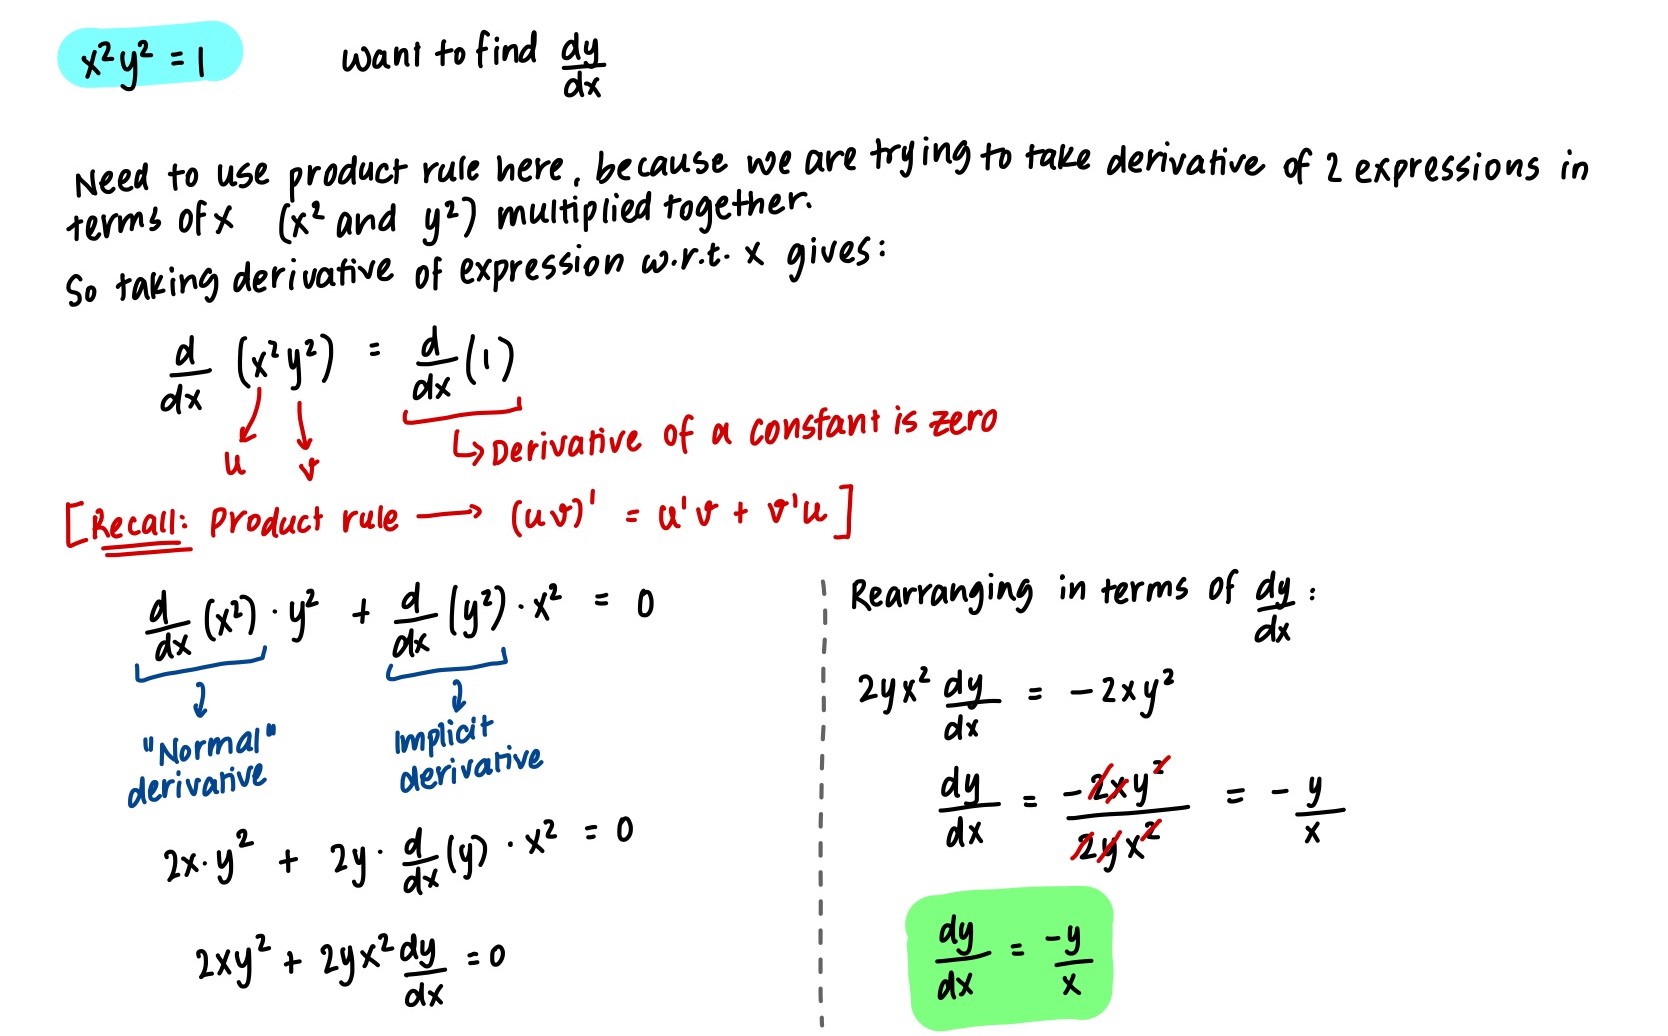 x²y² = 1 want to find dy/dx
Need to use product rule here, because we are trying to take derivative of 2 expressions in
terms of x (x² and y²) multiplied together.
So taking derivative of expression w.r.t. x gives:
d/dx (x²y²) = d/dx (1)
u v
↳ Derivative of a constant is zero
[Recall: Product rule → (uv)' = u'v + v'u]
d/dx (x²) · y² + d/dx (y²) · x² = 0
"Normal"
derivative
Implicit
derivative
2x · y² + 2y · d/dx (y) · x² = 0
2xy² + 2yx² dy/dx = 0
Rearranging in terms of dy/dx :
2yx² dy/dx = -2xy²
dy/dx = -2xy²/2yx² = - y/x
dy/dx = -y/x